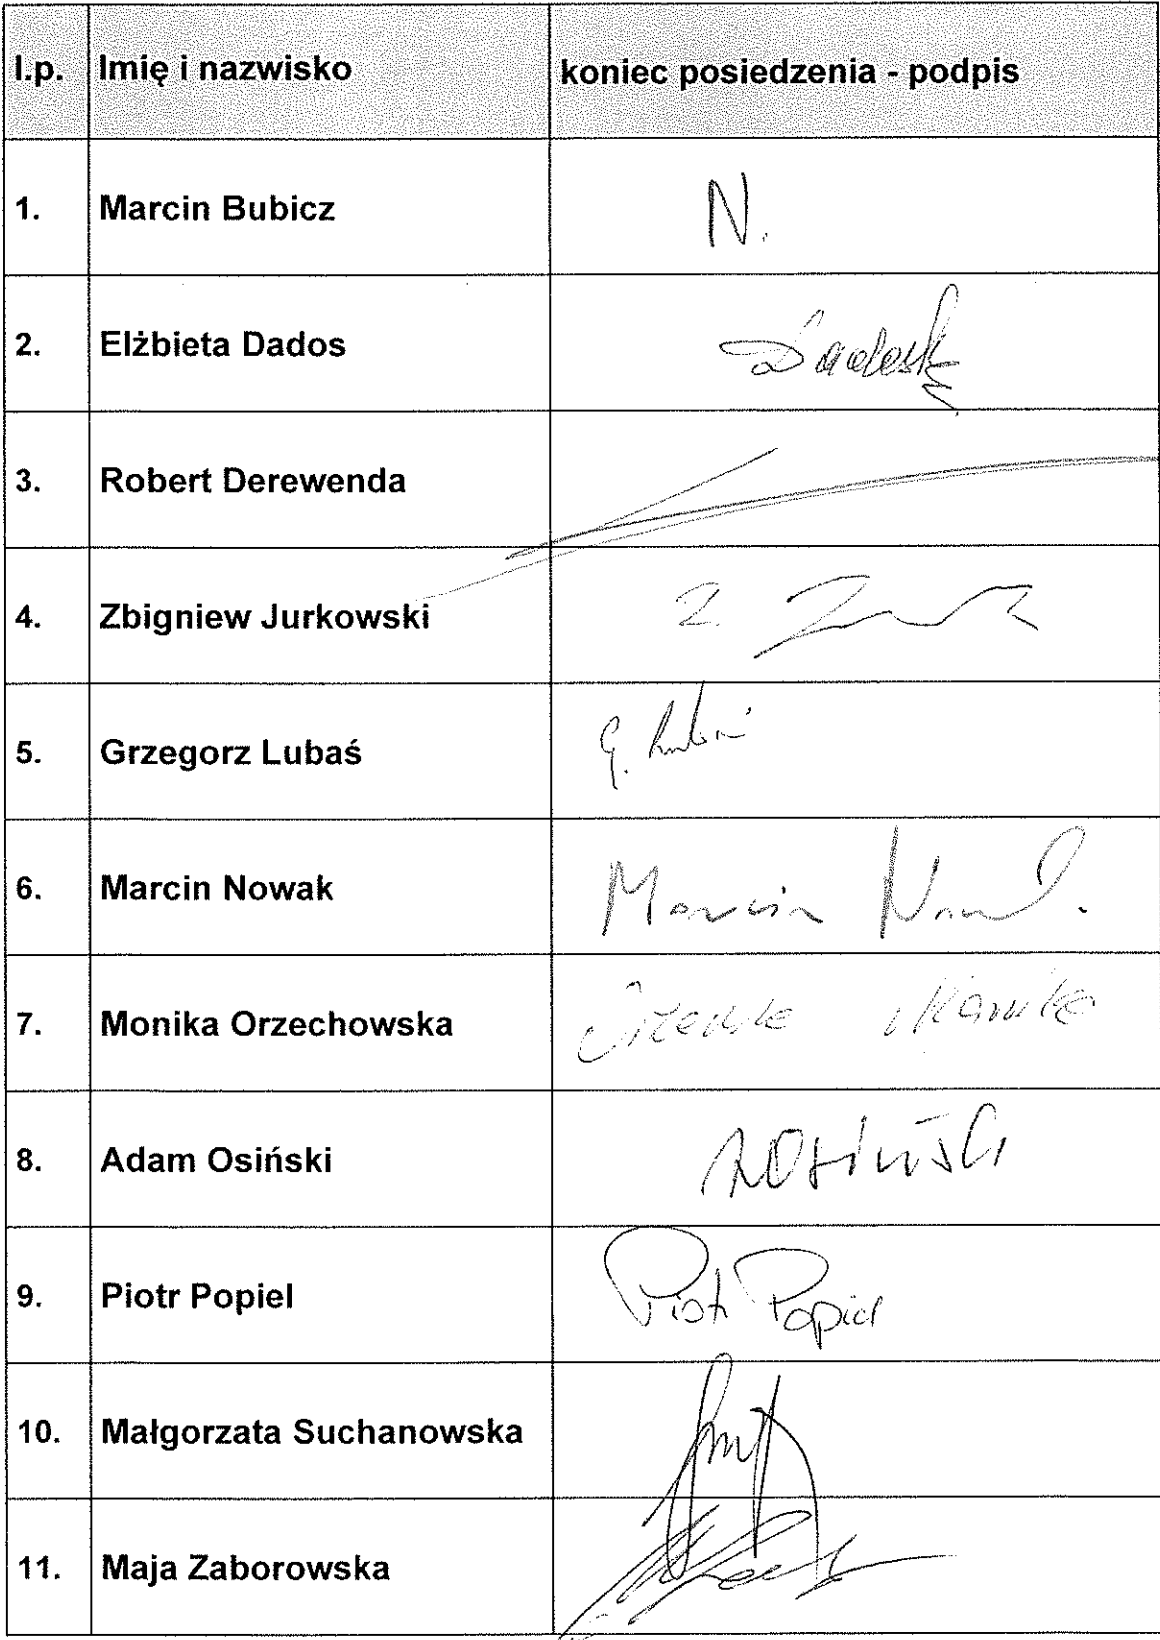 l.p. Imię i nazwisko koniec posiedzenia - podpis
1. Marcin Bubicz N.
2. Elżbieta Dados
3. Robert Derewenda
4. Zbigniew Jurkowski Z.
5. Grzegorz Lubaś G.
6. Marcin Nowak Marcin
7. Monika Orzechowska
8. Adam Osiński AOsiński
9. Piotr Popiel Piotr Popiel
10. Małgorzata Suchanowska
11. Maja Zaborowska